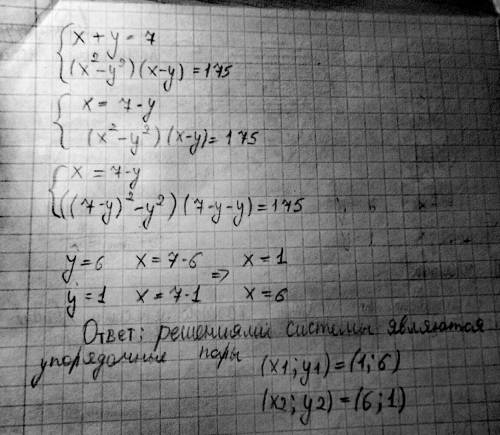 x + y = 7
(x² - y²)(x-y) = 175
x = 7-y
(x² - y²)(x-y) = 175
x = 7-y
((7-y)² - y²)(7-y-y) = 175
y=6 x = 7-6 ⇒ x = 1
y=1 x = 7-1 x = 6
Ответ: решениями системы являются
упорядочные пары
(x1; y1) = (1; 6)
(x2; y2) = (6; 1)